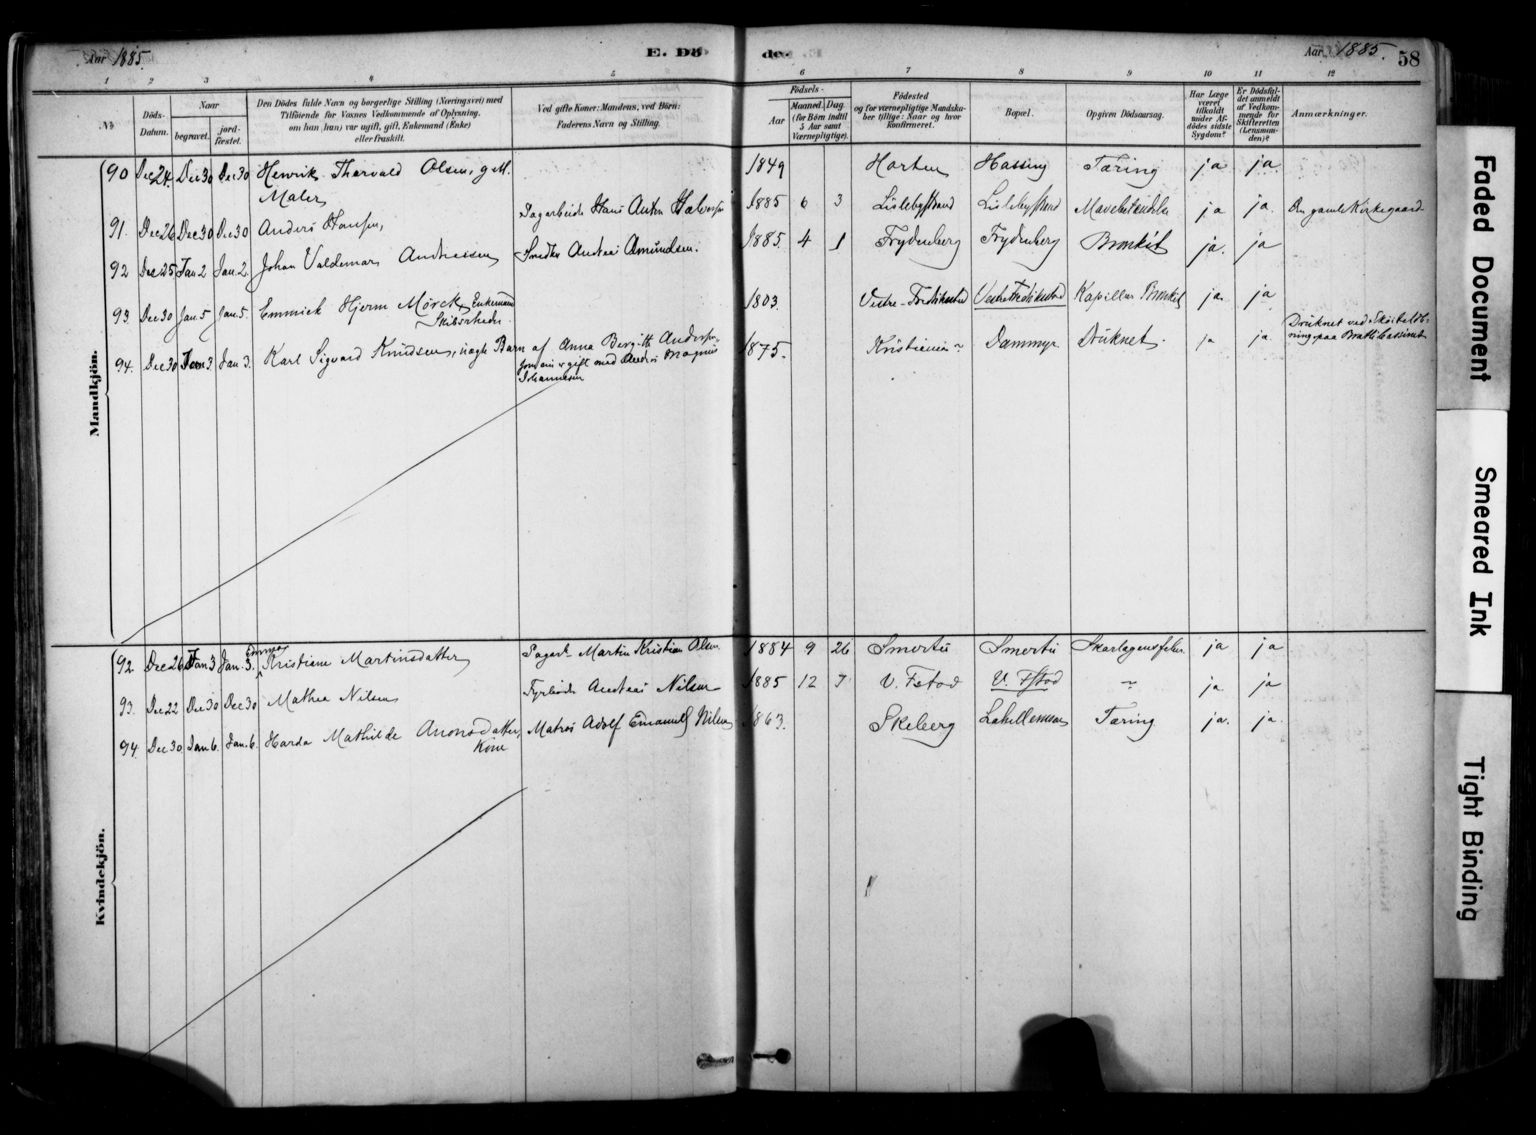 Aar 1885. E. Dö
de. Aar 1885. 58
1 2 3 4 5 6 7 8 9 10 11 12
No.
Döds-
Datum.
Naar
begravet.
jord-
fæstet.
Den Dödes fulde Navn og borgerlige Stilling (Næringsvei) med
Tilföiende for Voxnes Vedkommende af Oplysning,
om han (hun) var ugift, gift, Enkemand (Enke)
eller fraskilt.
Ved gifte Koner: Mandens, ved Börn:
Faderens Navn og Stilling.
Födsels-
Aar
Maaned. Dag
(for Börn indtil
5 Aar samt
Værnepligtige).
Födested
og for værnepligtige Mandska-
ber tillige: Naar og hvor
konfirmeret.
Bopæl.
Opgiven Dödsaarsag.
Har Læge
været
tilkaldt
under Af-
dödes sidste
Sygdom?
Er Dödsfal-
det anmeldt
af Vedkom-
mende for
Skifteretten
(Lensman-
den)?
Anmærkninger.
Mandkjön.
90 Dec 24. Dec 30 Dec 30 Henrik Thorvald Olsen, gift. 1849 Horten Hassing Tæring ja ja.
Maler
91. Dec 26 Dec 30 Dec 30 Anders Hansen, Sagarbeider Hans Anton Halvorsen 1885 6 3 Lislebystrand Lislebystrand ja ja. Den gamle Kirkegaard
92 Dec 25 Jan 2 Jan. 2. Johan Valdemar Andreassen Smed Andreas Amundsen. 1885. 4 1 Frydenberg Frydenberg Bronkit ja. ja
93. Dec 30 Jan. 5 Jan. 5. Emmick Hjerm Mørck, Enkemand 1803. Vestre-Fredrikstad Vestre Fredrikstad Kapillær Bronkit ja. ja
Skibsrheder.
94. Dec 30 Jan 3 Jan 3. Karl Sigvard Knudsen, uægte Barn af Anna Bergitte Andersen, 1875. Kristiania Dammyr Druknet. ja ja.
som er gift med Anders Magnus
Johannesen
Druknet ved Skøiteløb-
ning paa
Kvindekjön.
92. Dec 26 Jan 3 Jan. 3. Emma
Kristiane Martinsdatter Sagarb. Martin Kristian Olsen 1884 9 26 Smertu Smertu Skarlagensfeber ja ja
93. Dec 22 Dec 30 Dec 30 Mathea Nilsen Fyrbøder Andreas Nilsen 1885 12 7 V. Fstad V. Fstad " ja ja
94. Dec 30 Jan 6. Jan. 6. Harda Mathilde Aronsdatter, Matros Adolf Emanuel Nilsen 1863. Skeberg Lahellemoen Tæring ja. ja.
Kone
Faded Document
Smeared Ink
Tight Binding